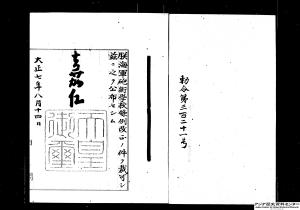 勅令第三百二十一号
朕海軍砲術学校条例改正ノ件ヲ裁可シ
茲ニ之ヲ公布セシム
嘉仁
天皇御璽
大正七年八月十四日
アジア歴史資料センター